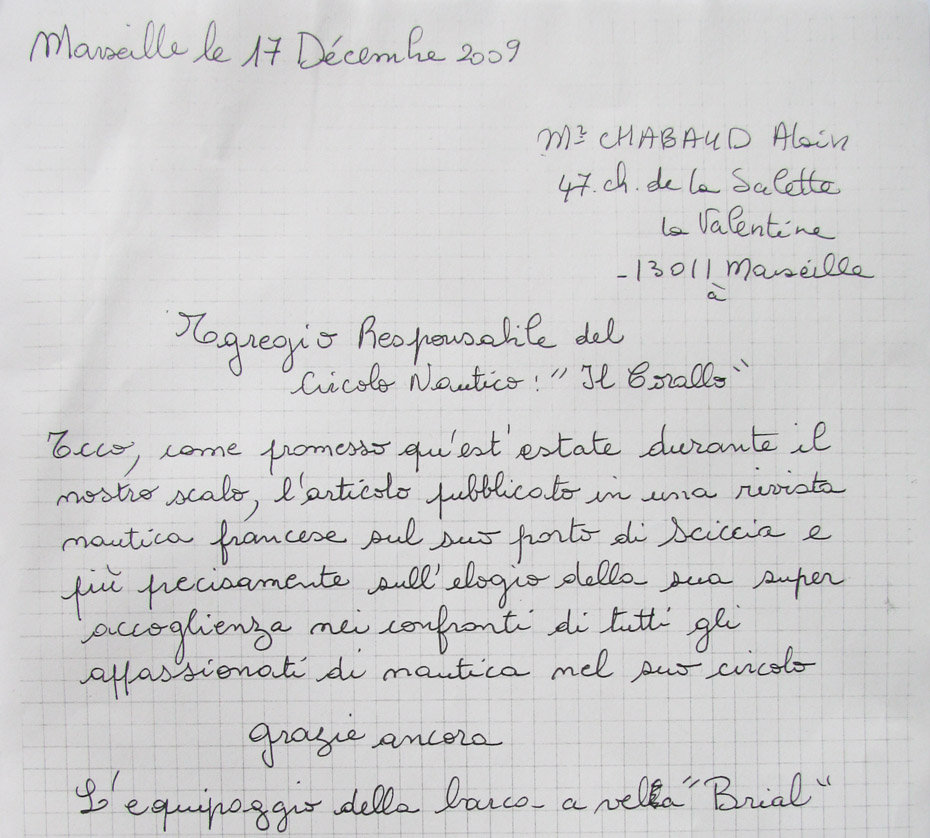 Marseille le 17 Décembre 2009
Mr CHABAUD Alain
47. ch. de la Salette
la Valentine
-13011 Marseille
à
Egregio Responsabile del
Circolo Nautico: "Il Corallo"
Ecco, come promesso qu'est'estate durante il
nostro scalo, l'articolo pubblicato in una rivista
nautica francese sul suo porto di Sciccia e
più precisamente sull'elogio della sua super
accoglienza nei confronti di tutti gli
appassionati di nautica nel suo circolo
grazie ancora
L'equipaggio della barca - a vela "Brial"